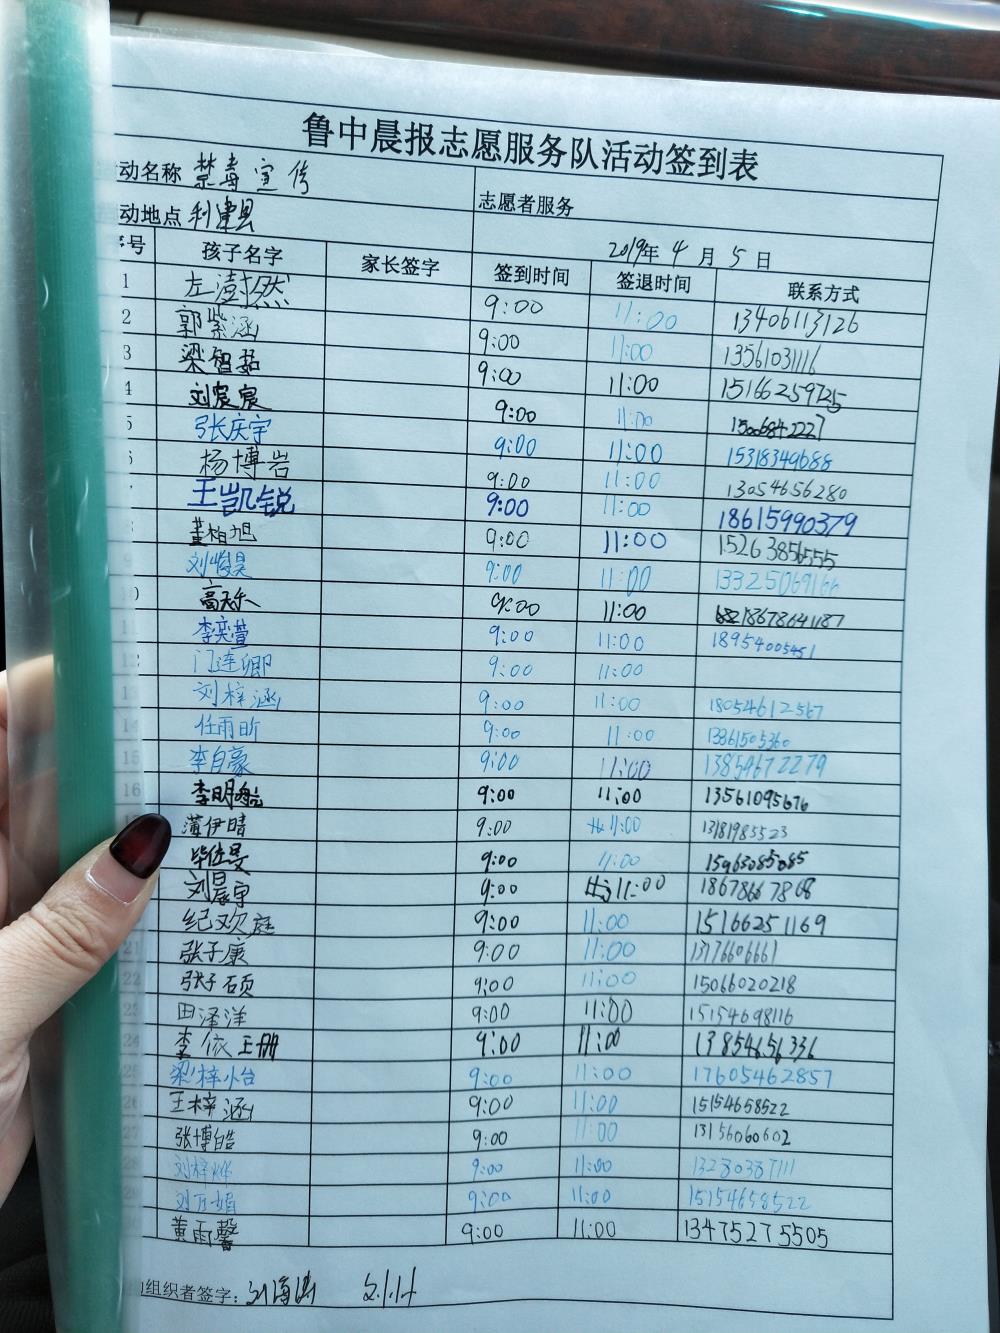 鲁中晨报志愿服务队活动签到表
动名称 禁毒宣传
志愿者服务
动地点 利津县
2019年 4 月 5 日
序号 孩子名字 家长签字 签到时间 签退时间 联系方式
1 左澍然 9:00 11:00 13406113126
2 郭紫涵 9:00 11:00 13561031116
3 梁智茹 9:00 11:00 15166259725
4 刘宸宸 9:00 11:00 15006842227
5 张庆宇 9:00 11:00 15318349688
6 杨博岩 9:00 11:00 13054656280
王凯锐 9:00 11:00 18615990379
董柏旭 9:00 11:00 15263856555
刘峻昊 9:00 11:00 13325069166
高天乐 9:00 11:00 18678641187
11 李奕萱 9:00 11:00 18954005451
12 门连卿 9:00 11:00
13 刘梓涵 9:00 11:00 18054612567
14 任雨昕 9:00 11:00 13861505360
15 李自豪 9:00 11:00 13854672279
16 李明航 9:00 11:00 13561095676
薄伊晴 9:00 11:00 13181985523
毕佐旻 9:00 11:00 15963085085
刘晨宇 9:00 11:00 18678667868
纪欢庭 9:00 11:00 15166251169
21 张子康 9:00 11:00 13176606661
22 张子硕 9:00 11:00 15066020218
23 田泽洋 9:00 11:00 15154698116
24 李依珊 9:00 11:00 13854656336
25 梁梓怡 9:00 11:00 17605462857
26 王梓涵 9:00 11:00 15154658522
27 张博皓 9:00 11:00 13156060602
28 刘梓烨 9:00 11:00 13280387111
29 刘万娟 9:00 11:00 15154658522
30 黄雨馨 9:00 11:00 13475275505
组织者签字: 刘海涛